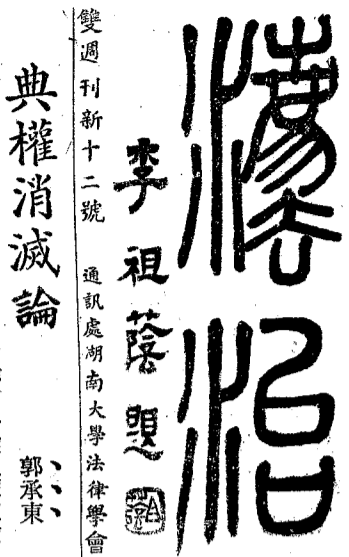 灋治
李祖蔭題
雙週刊新十二號 通訊處湖南大學法律學會
典權消滅論
郭承東